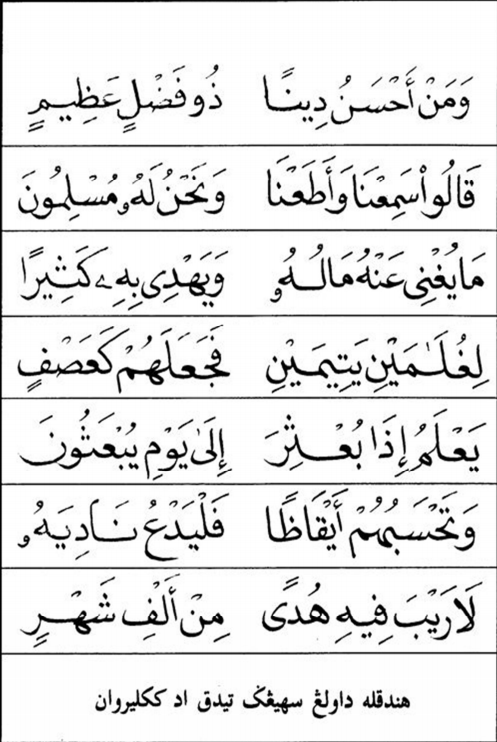 وَمَنْ أَحْسَنُ دِينًا ذُو فَضْلٍ عَظِيمٍ
قَالُوا۟ سَمِعْنَا وَأَطَعْنَا وَنَحْنُ لَهُۥ مُسْلِمُونَ
مَا يُغْنِى عَنْهُ مَالُهُۥ وَيَهْدِى بِهِۦ كَثِيرًا
لِغُلَـٰمَيْنِ يَتِيمَيْنِ فَجَعَلَهُمْ كَعَصْفٍ
يَعْلَمُ إِذَا بُعْثِرَ إِلَىٰ يَوْمِ يُبْعَثُونَ
وَتَحْسَبُهُمْ أَيْقَاظًا فَلْيَدْعُ نَادِيَهُۥ
لَا رَيْبَ فِيهِ هُدًى مِنْ أَلْفِ شَهْرٍ
هندقله داولڠ سهيڠݢ تيدق اد ککليروان